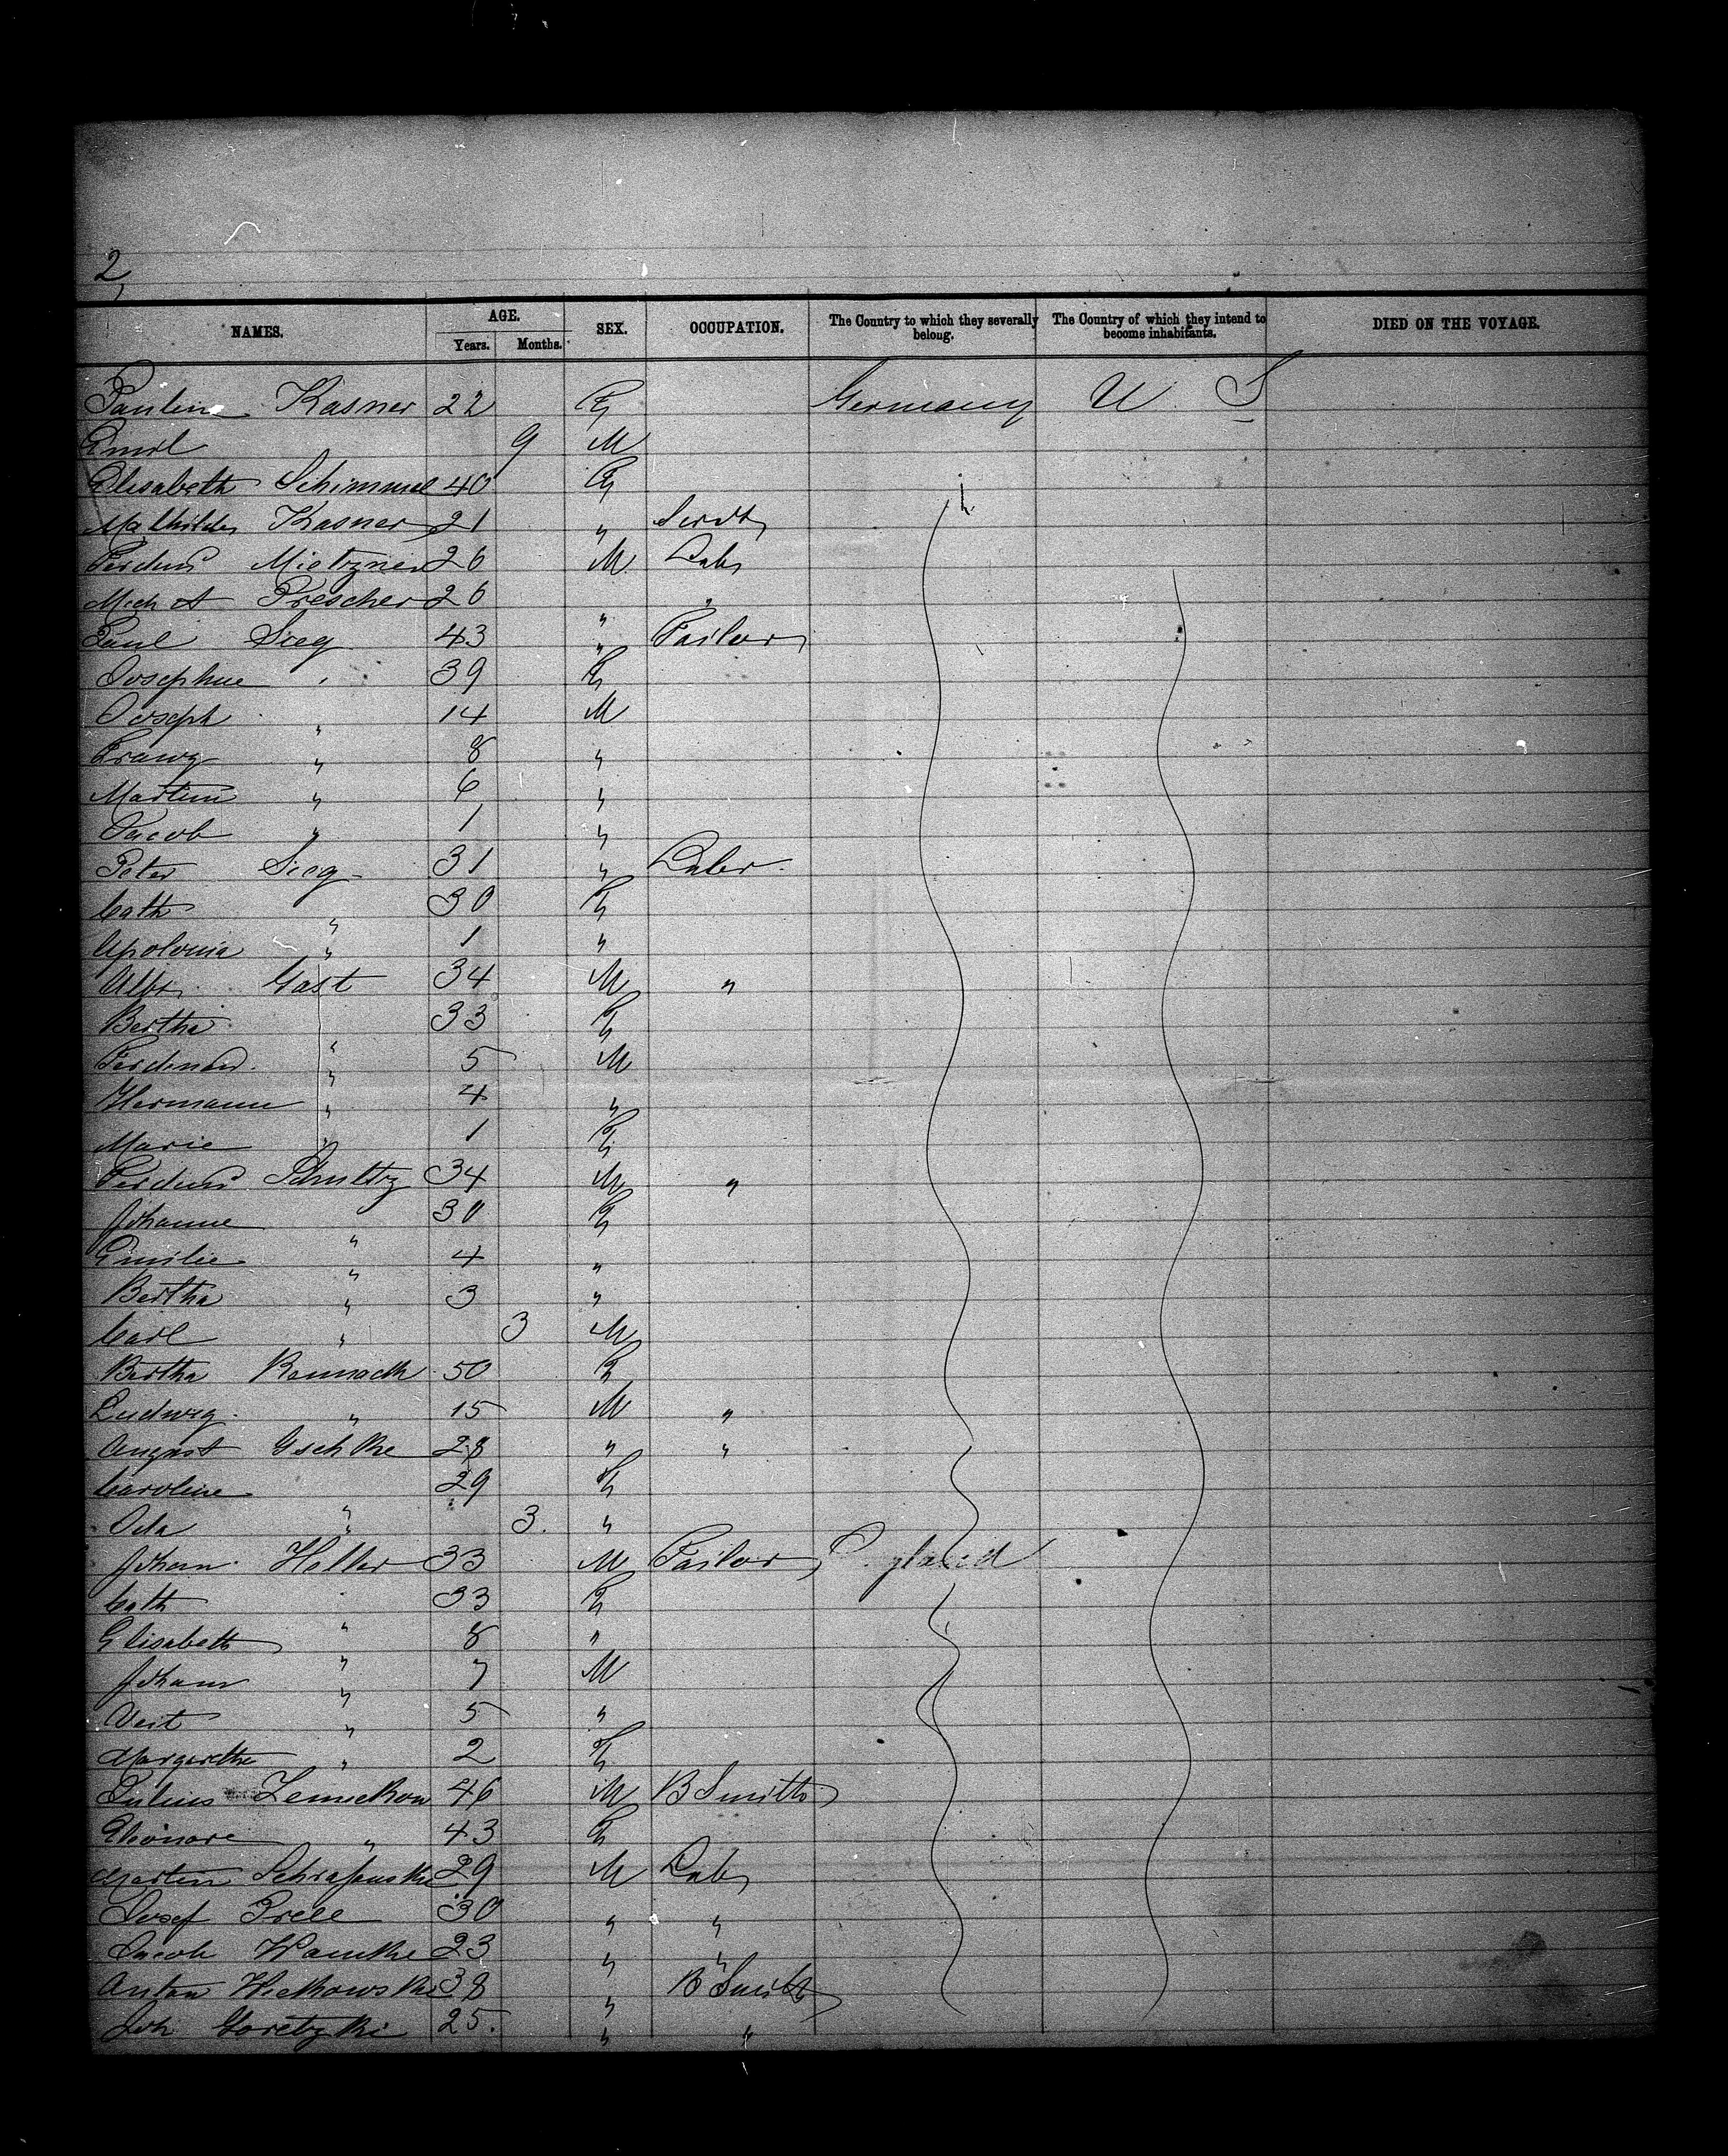 2
NAMES. AGE. SEX. OCCUPATION. The Country to which they severally belong. The Country of which they intend to become inhabitants. DIED ON THE VOYAGE.
Years. Months.
Paulina Kasner 22 F Germany U. S
Emil 9 M
Elisabeth Schimmel 40 F
Mathilde Kasner 21 " Servt
Ferdind Mietzner 26 M Lab
Mich A Prescher 26 " "
Paul Sieg 43 " Tailor
Josephue " 39 F
Joseph " 14 M
Franz " 8 "
Martin " 6 "
Jacob " 1 "
Peter Sieg 31 " Labr
Cath " 30 F
Apolonia " 1 "
Albr. Gast 34 M "
Bertha " 33 F
Ferdinand " 5 M
Hermann " 4 "
Marie " 1 F
Ferdind Schultz 34 M "
Johanne " 30 F
Emilie " 4 "
Bertha " 3 "
Carl " 3 M
Bertha 50 F
Ludwig " 15 M "
August 28 " "
Caroline " 29 F
Ida " 3. "
Johan Heller 33 M Tailor
Cath " 33 F
Elisabeth " 8 "
Johann " 7 M
Veit " 5 "
Margarethe " 2 F
Julius 46 M B Smith
Elionore " 43 F
Martin 29 M Lab
Josef Prell 30 " "
Jacob 23 " "
Anton 38 " B Smith
Joh Goretzki 25. " "